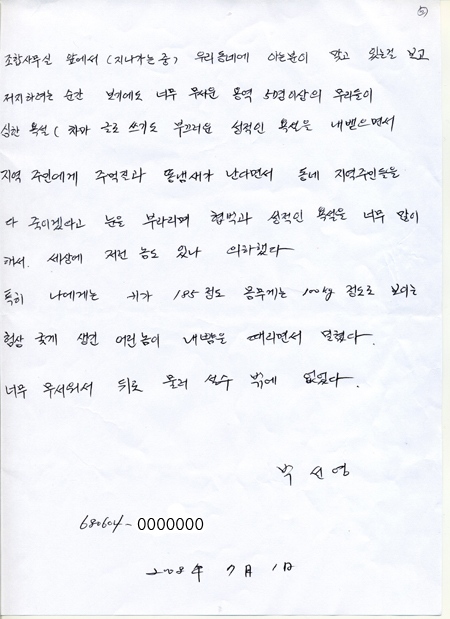 ⑤
조합사무실 앞에서 (지나가는 중) 우리동네에 아는분이 맞고 있는걸 보고
저지하려는 순간 보기에도 너무 무서운 용역 5명이상의 무리들이
심한 욕설 ( 차마 글로 쓰기도 부끄러운 성적인 욕설을 내뱉으면서
지역 주민에게 추억진과 똥냄새가 난다면서 동네 지역주민들을
다 죽이겠다고 눈을 부라리며 협박과 성적인 욕설을 너무 많이
해서. 세상에 저런 놈도 있나 의아했다
특히 나에게는 키가 185정도 몸무게는 100kg 정도로 보이는
험상 궂게 생긴 어린놈이 내빰을 때리면서 덤볐다.
너무 무서워서 뒤로 물러 설수 밖에 없었다.
박 선 영
680604-0000000
2008年 7月 1日